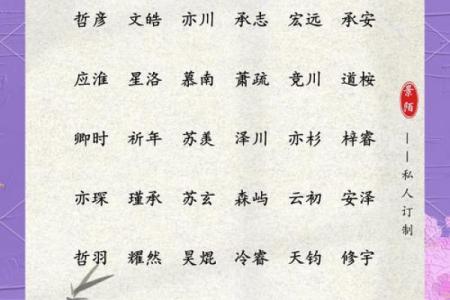 哲彦 文皓 亦川 承志 宏远 承安
应淮 星洛 慕南 萧疏 竞川 道桉
卿时 祈年 苏羡 泽川 亦杉 梓睿
亦琛 瑾承 苏玄 森屿 云初 安泽
哲羽 耀然 昊焜 冷睿 天钧 修宇
景陌
——私人订制